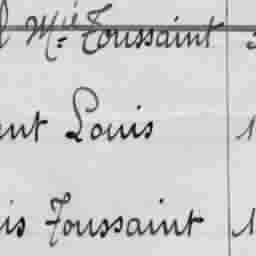 l M.ié Toussaint
ent Louis 1
is Toussaint 1